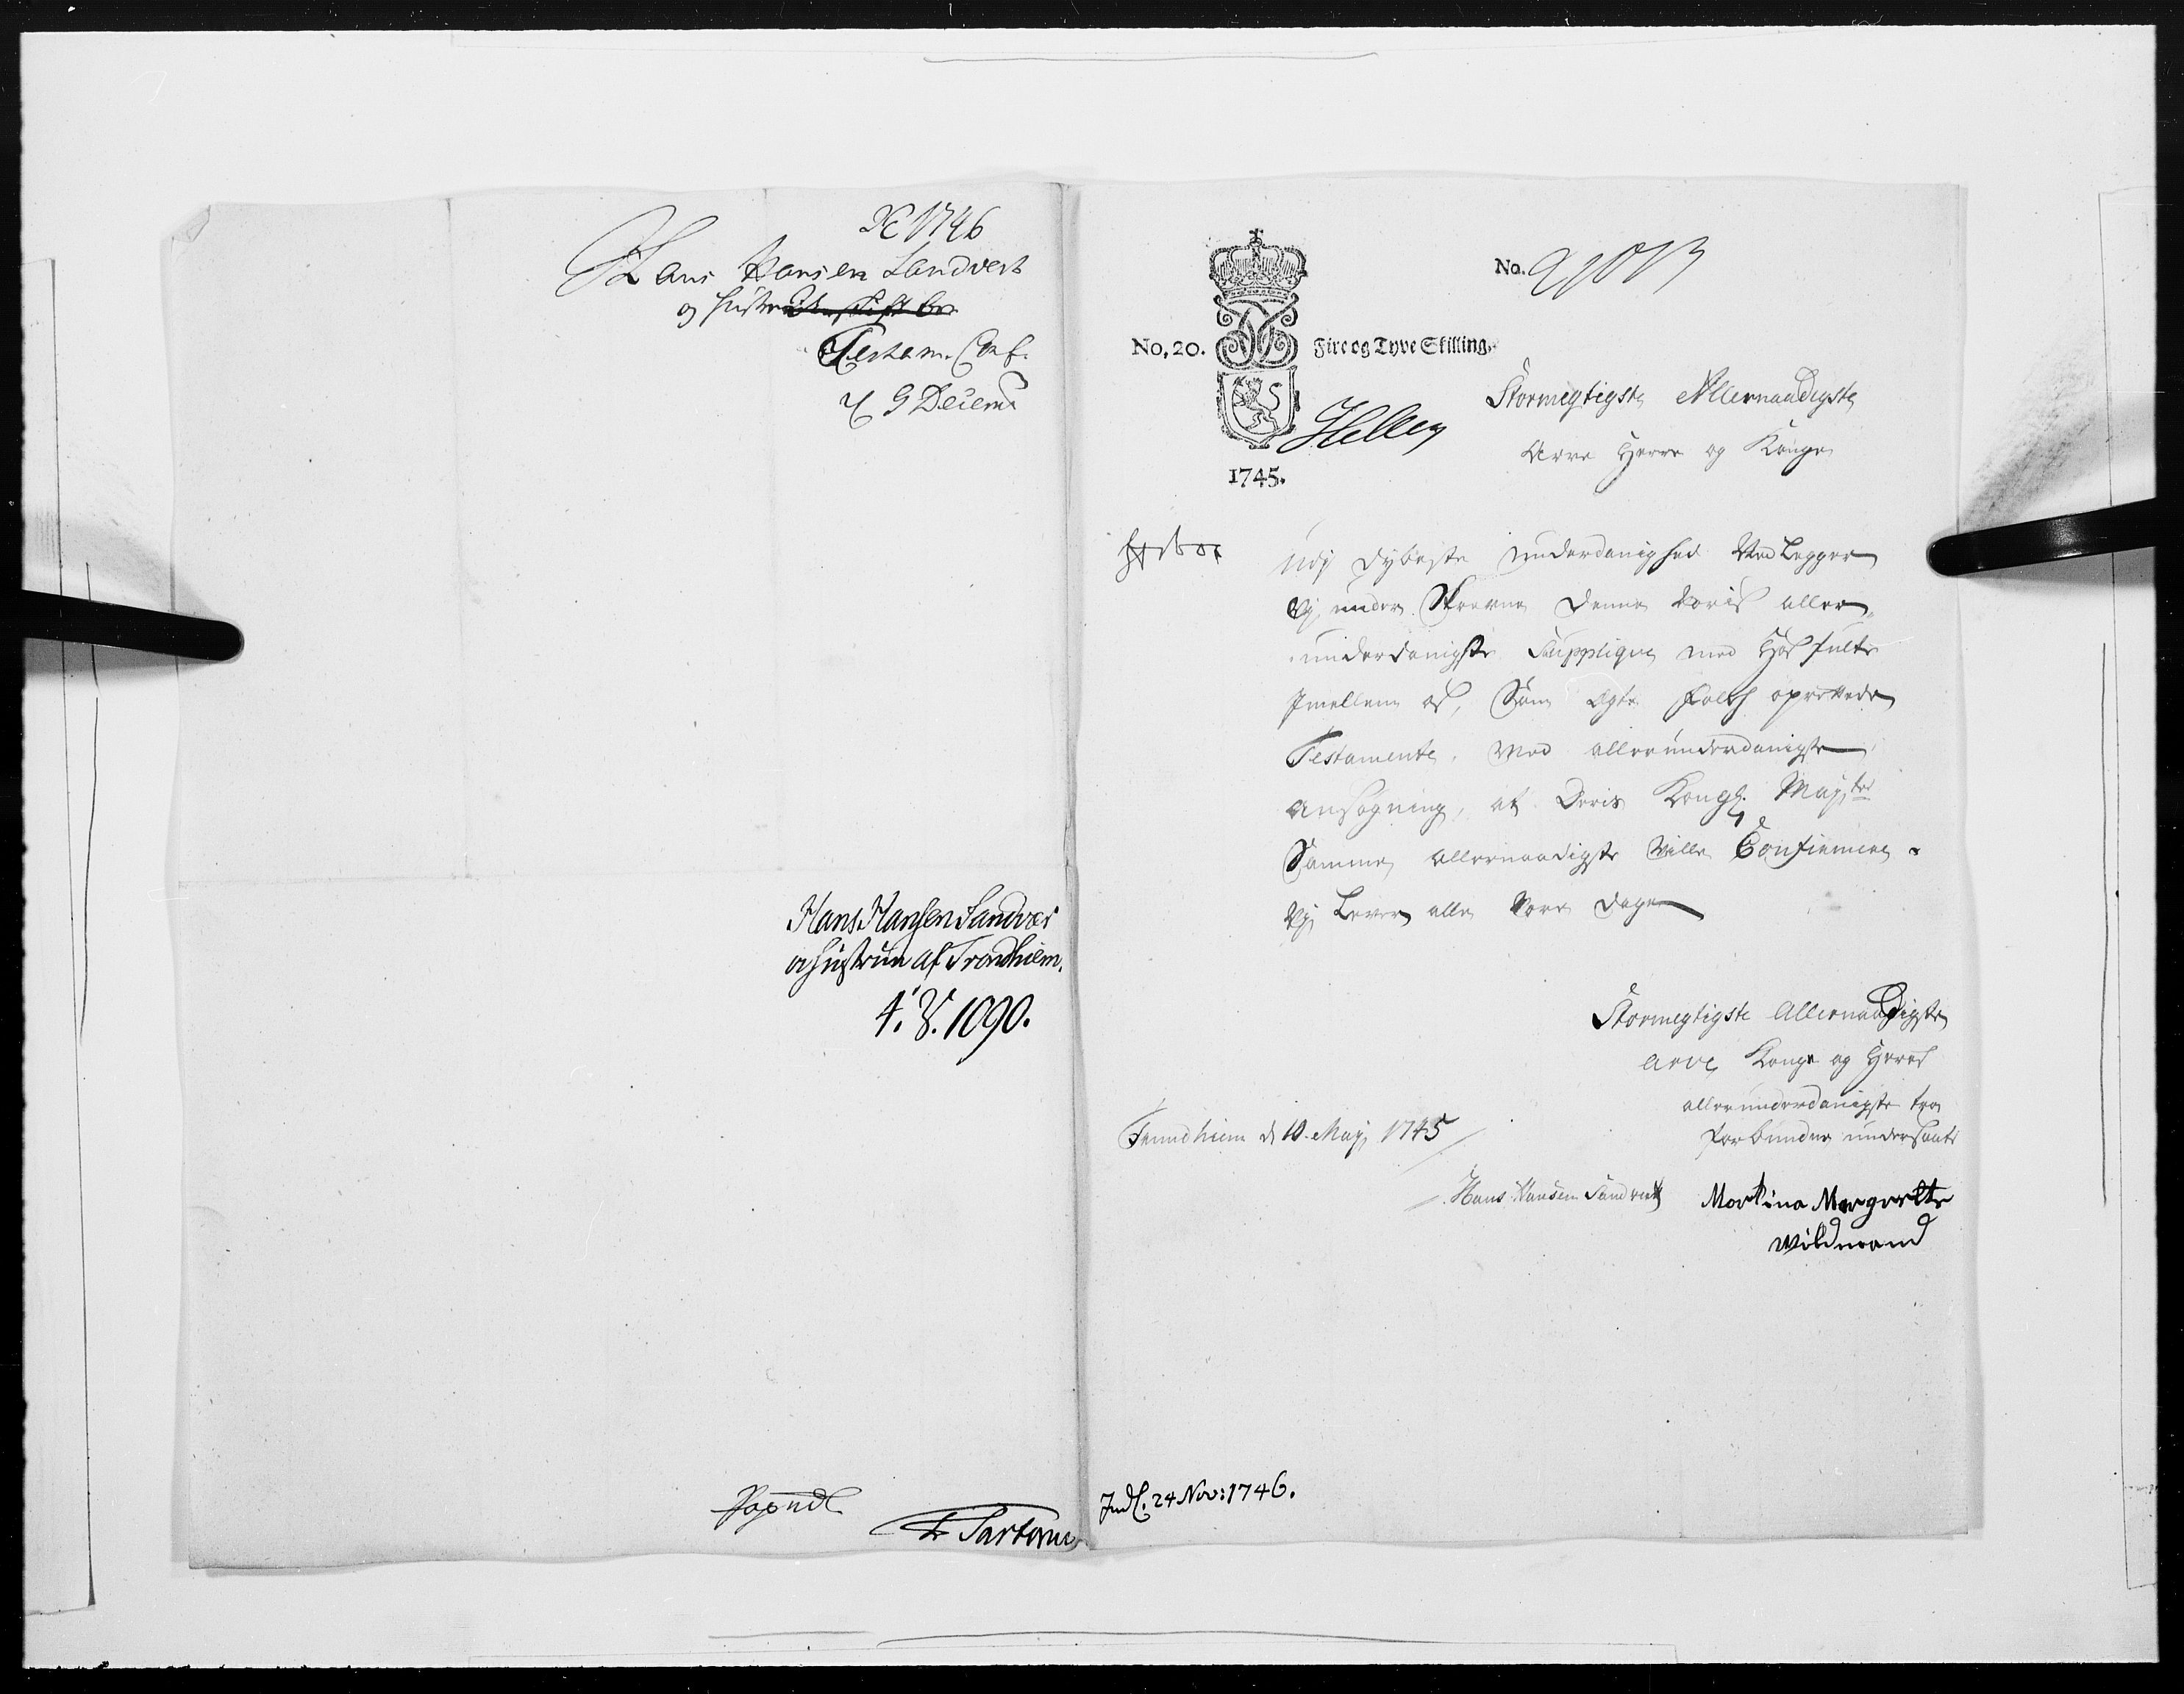 1746
Hans Hansen Landvert
og Hustrue
Testam. Conf.
d 9 Decemb
Hans Hansen Sandver
og Hustrue af Trondhiem.
4. V. 1090.
Expend
Sartorius
No. 20. Fire og Tyve Skilling.
No.
Hellen
1745.
Stormegtigste Allernaadigste
Arve Herre og Konge
Udj dybeste underdanighed Ved Legger
Vj under Skrevne denne voris aller¬
underdanigste Supplique med Hos fulte
Jmellem os, Som Egte Folch oprettede
Testamente, Med allerunderdanigste
Ansøgning, at Deris Kongl. Mayts
Samme allernaadigste Ville Confirmere.
Vj Lever alle Vore dage
Stormegtigste Allernaadigste
Arve Konge og Herres
allerunderdanigste troe
forbundne undersaatt
Trundhiem d 10 Maj 1745
Hans Hansen Sandvert
Martina Margrette
Wildmand
Indl. 24 Nov: 1746.